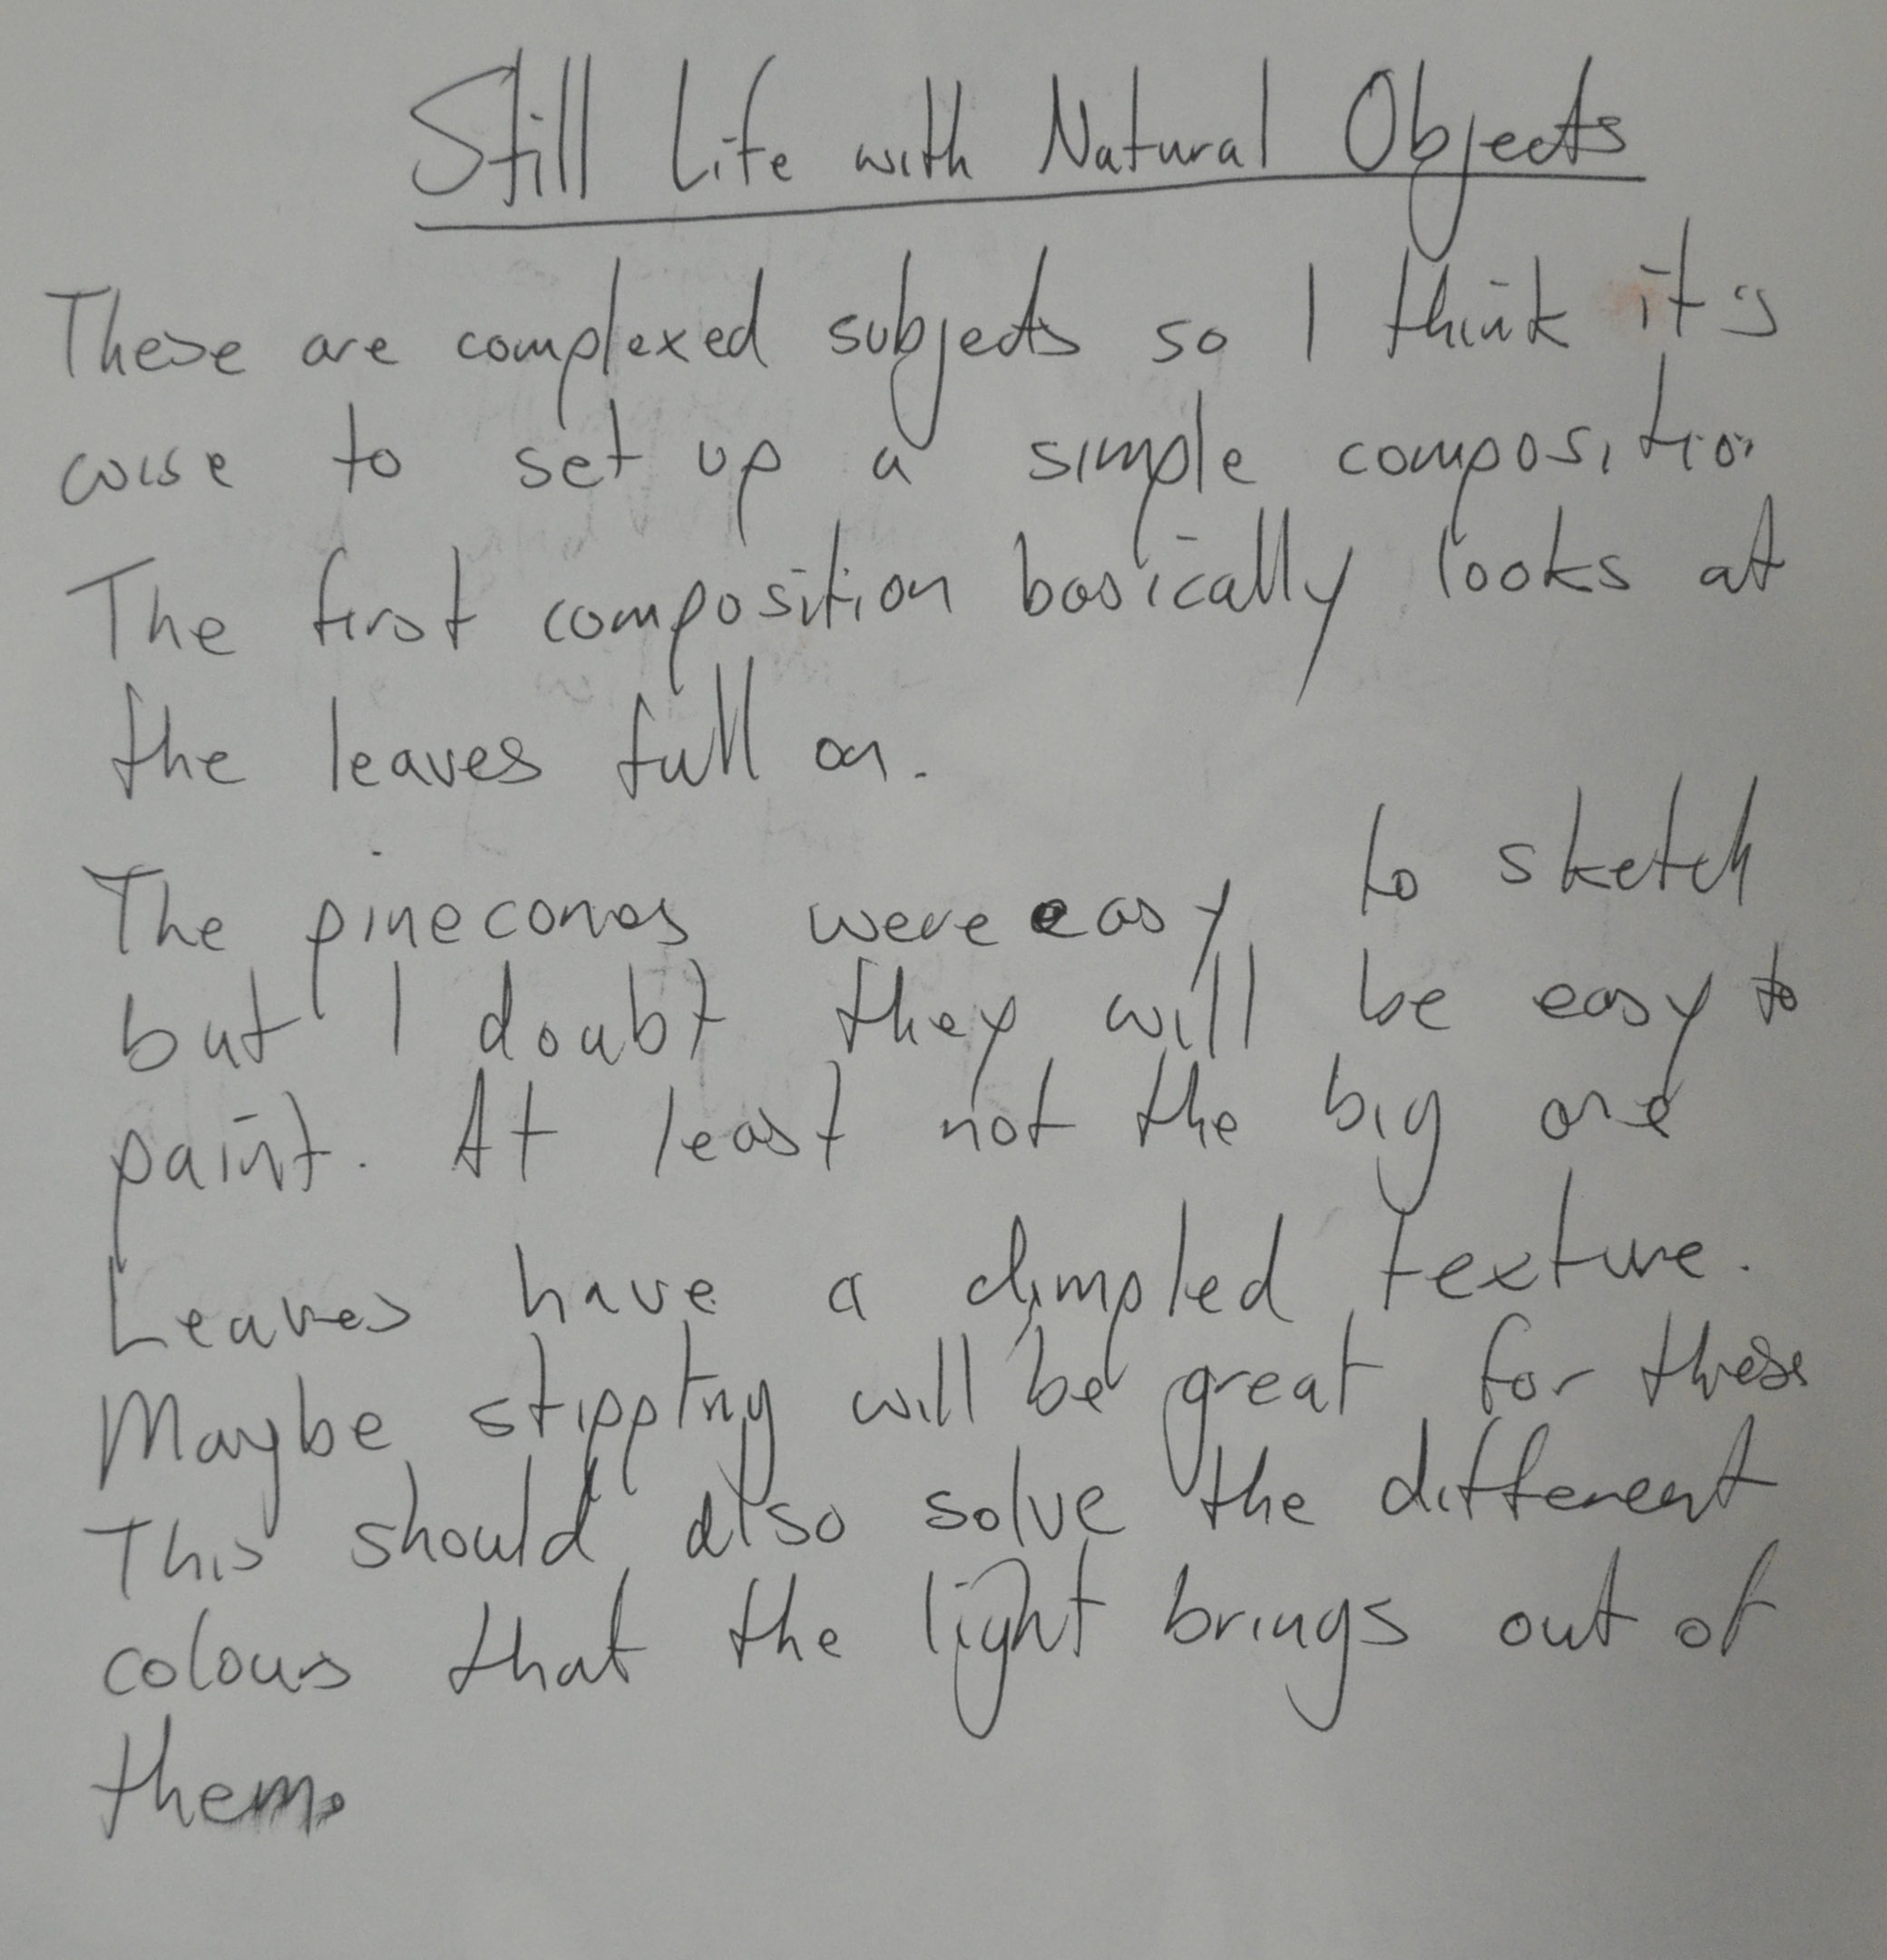 Still Life with Natural Objects
These are complexed subjects so I think it's
wise to set up a simple composition
The first composition basically looks at
the leaves full on.
The pinecones were easy to sketch
but I doubt they will be easy to
paint. At least not the big one
Leaves have a dimpled texture.
Maybe stippling will be great for these
This should also solve the different
colours that the light brings out of
them.